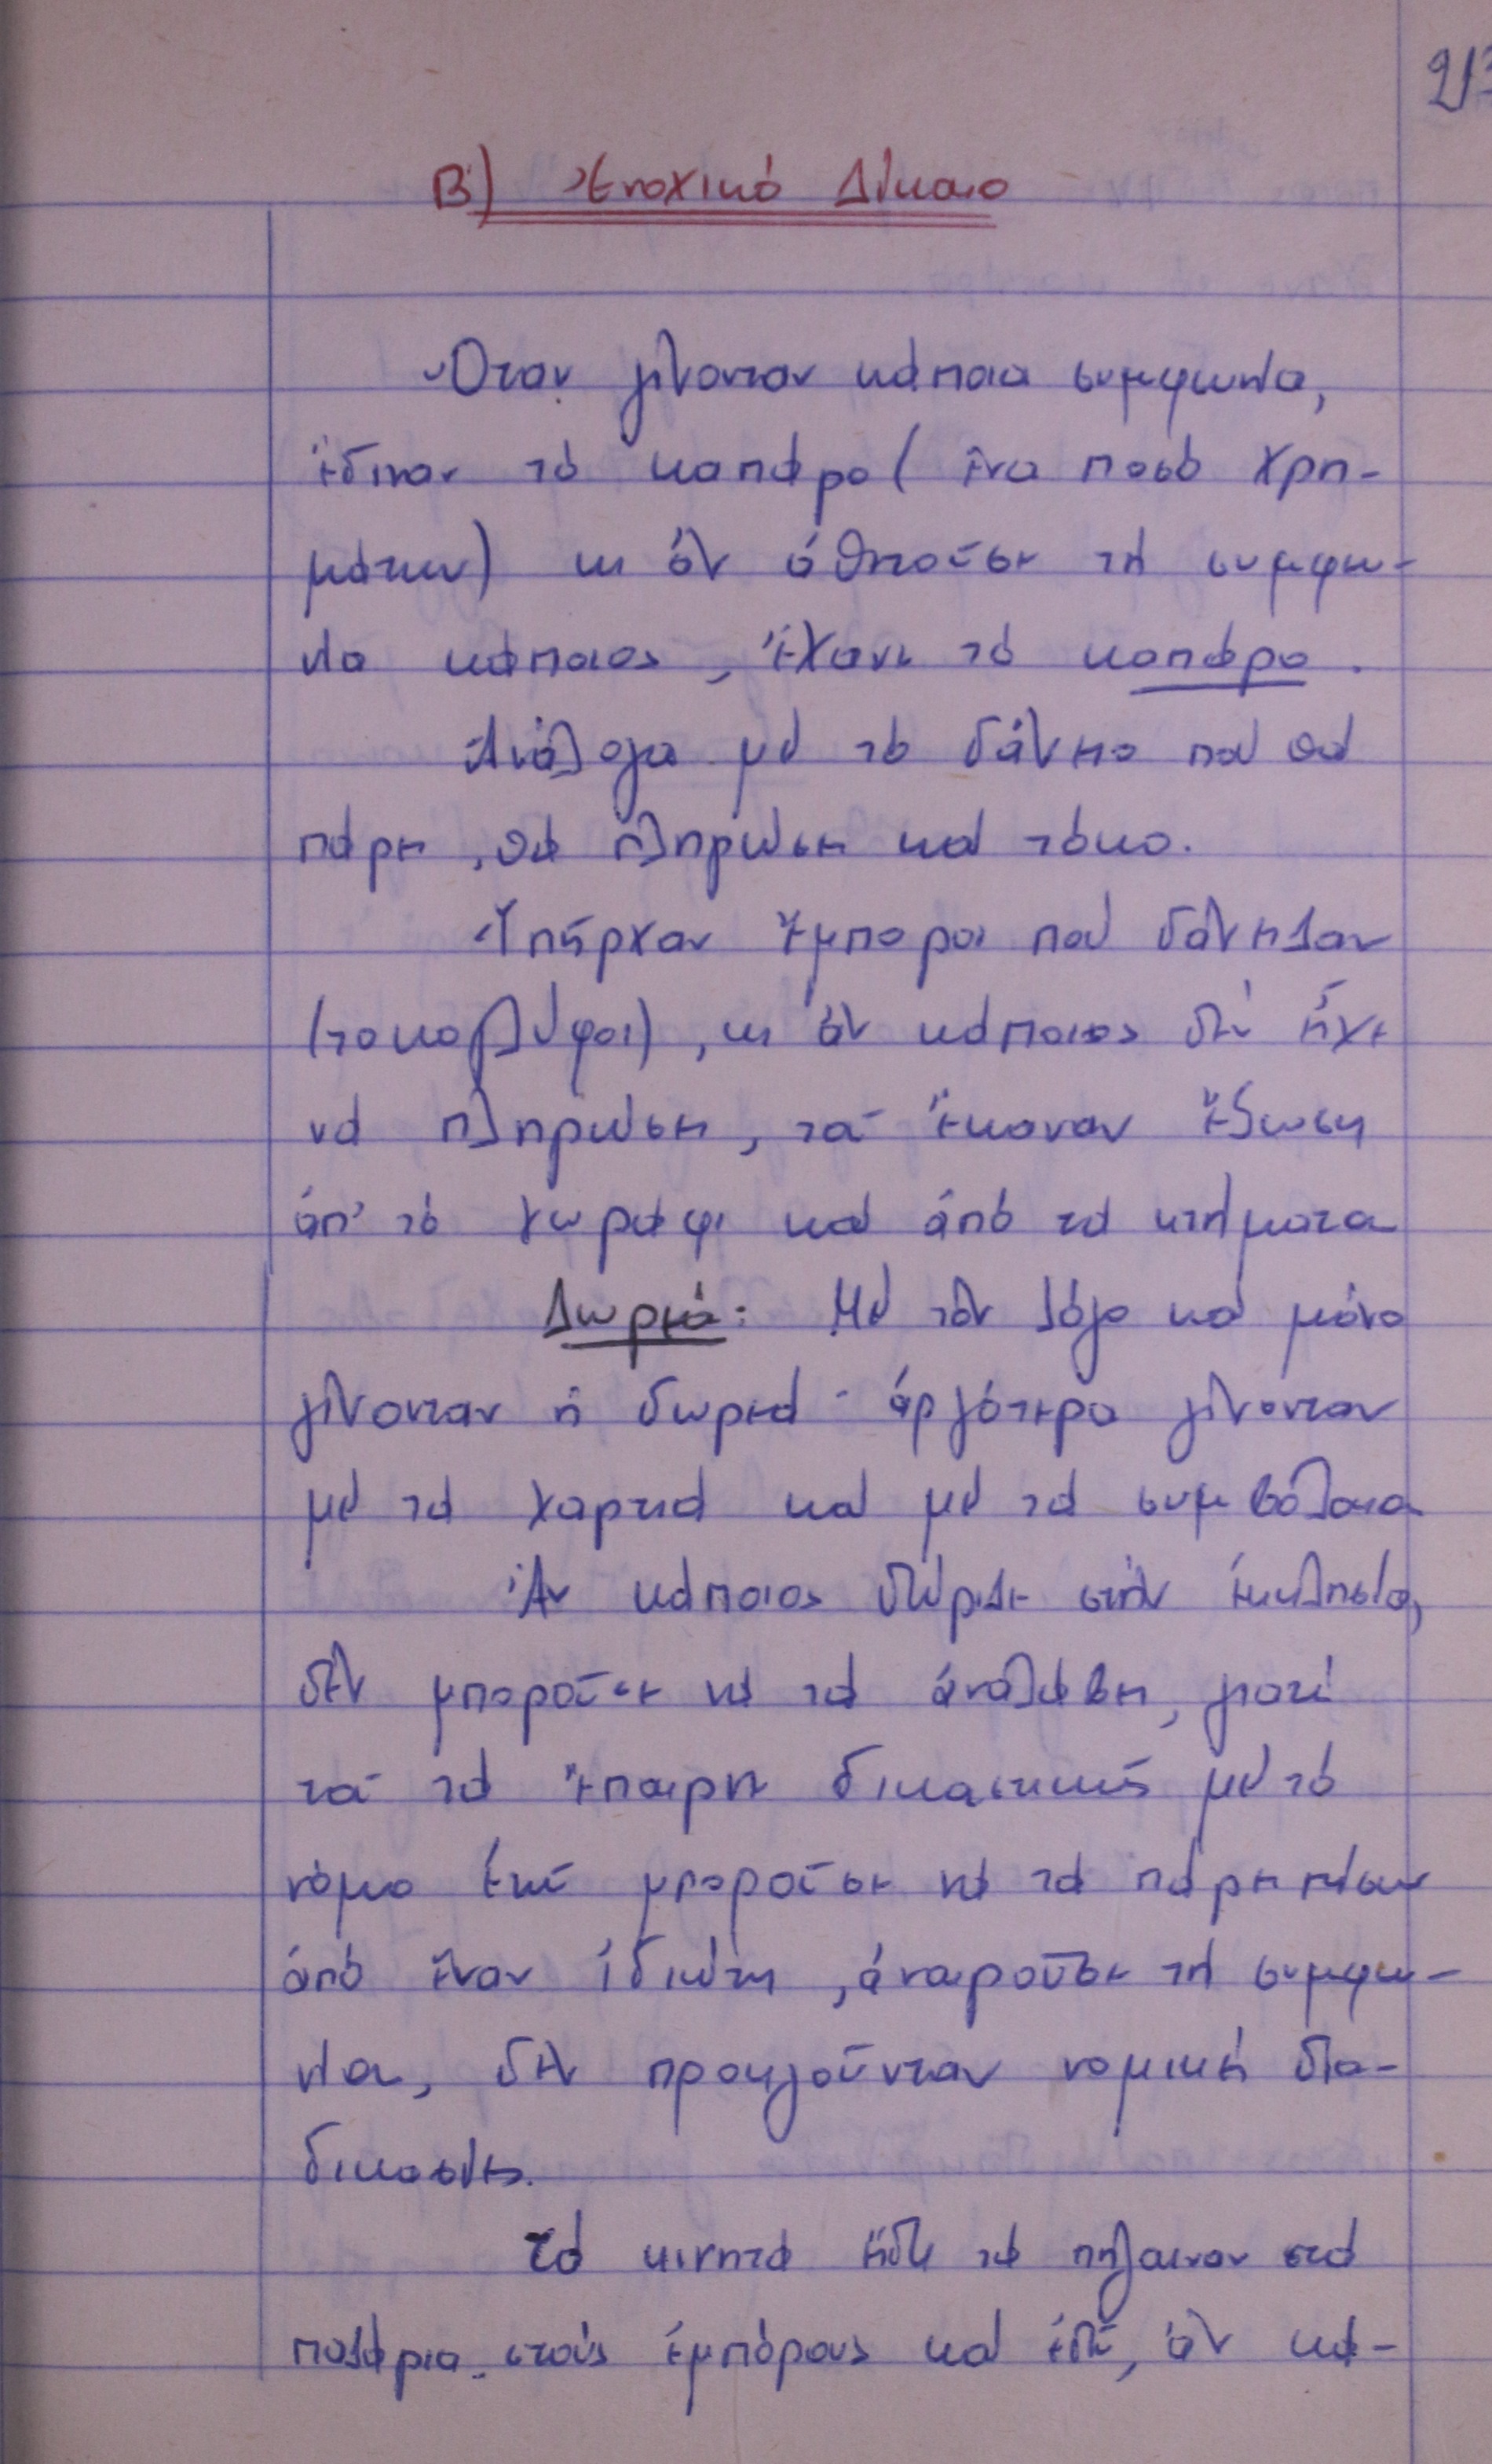 213
Β) Ἐνοχικό Δίκαιο
Ὅταν γίνονταν κάποια συμφωνία,
ἔδιναν τό καπάρο (ἕνα ποσό χρη-
μάτων) κι ἄν ἀθετοῦσε τή συμφω-
νία κάποιος, ἔχανε τό καπάρο.
Ἀνάλογα μέ τό δάνειο πού θά
πάρει, θά πληρώσει καί τόκο.
Ὑπῆρχαν ἔμποροι πού δάνειζαν
(τοκογλύφοι), κι ἄν κάποιος δέν εἶχε
νά πληρώσει, τοῦ ἔκαναν ἔξωση
ἀπ' τό χωράφι καί ἀπό τά κτήματα
Δωρεά: Μέ τόν λόγο καί μόνο
γίνονταν ἡ δωρεά· ἀργότερα γίνονταν
μέ τά χαρτιά καί μέ τά συμβόλαια
Ἄν κάποιος δώριζε στήν ἐκκλησία,
δέν μποροῦσε νά τά ἀναλάβει, γιατί
τοῦ τά ἔπαιρνε δικαστικῶς μέ τό
νόμο ἐνῶ μποροῦσε νά τά πάρει πίσω
ἀπό ἕναν ἰδιώτη, ἀναιροῦσε τή συμφω-
νία, δέν προηγοῦνταν νομική δια-
δικασία.
Τά κινητά εἴδη τά πήγαιναν στά
παζάρια στούς ἐμπόρους καί ἐδῶ, ἄν κά-